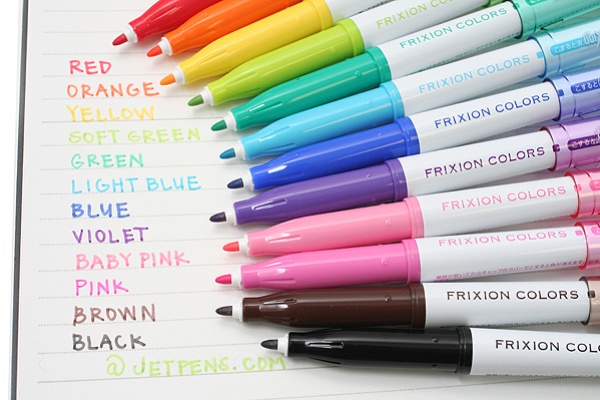 RED
ORANGE
YELLOW
SOFT GREEN
GREEN
LIGHT BLUE
BLUE
VIOLET
BABY PINK
PINK
BROWN
BLACK
@JETPENS.COM
FRIXION COLORS
FRIXION COLORS
FRIXION COLORS
FRIXION COLORS
FRIXION COLORS
FRIXION COLORS
FRIXION COLORS
FRIXION COLORS